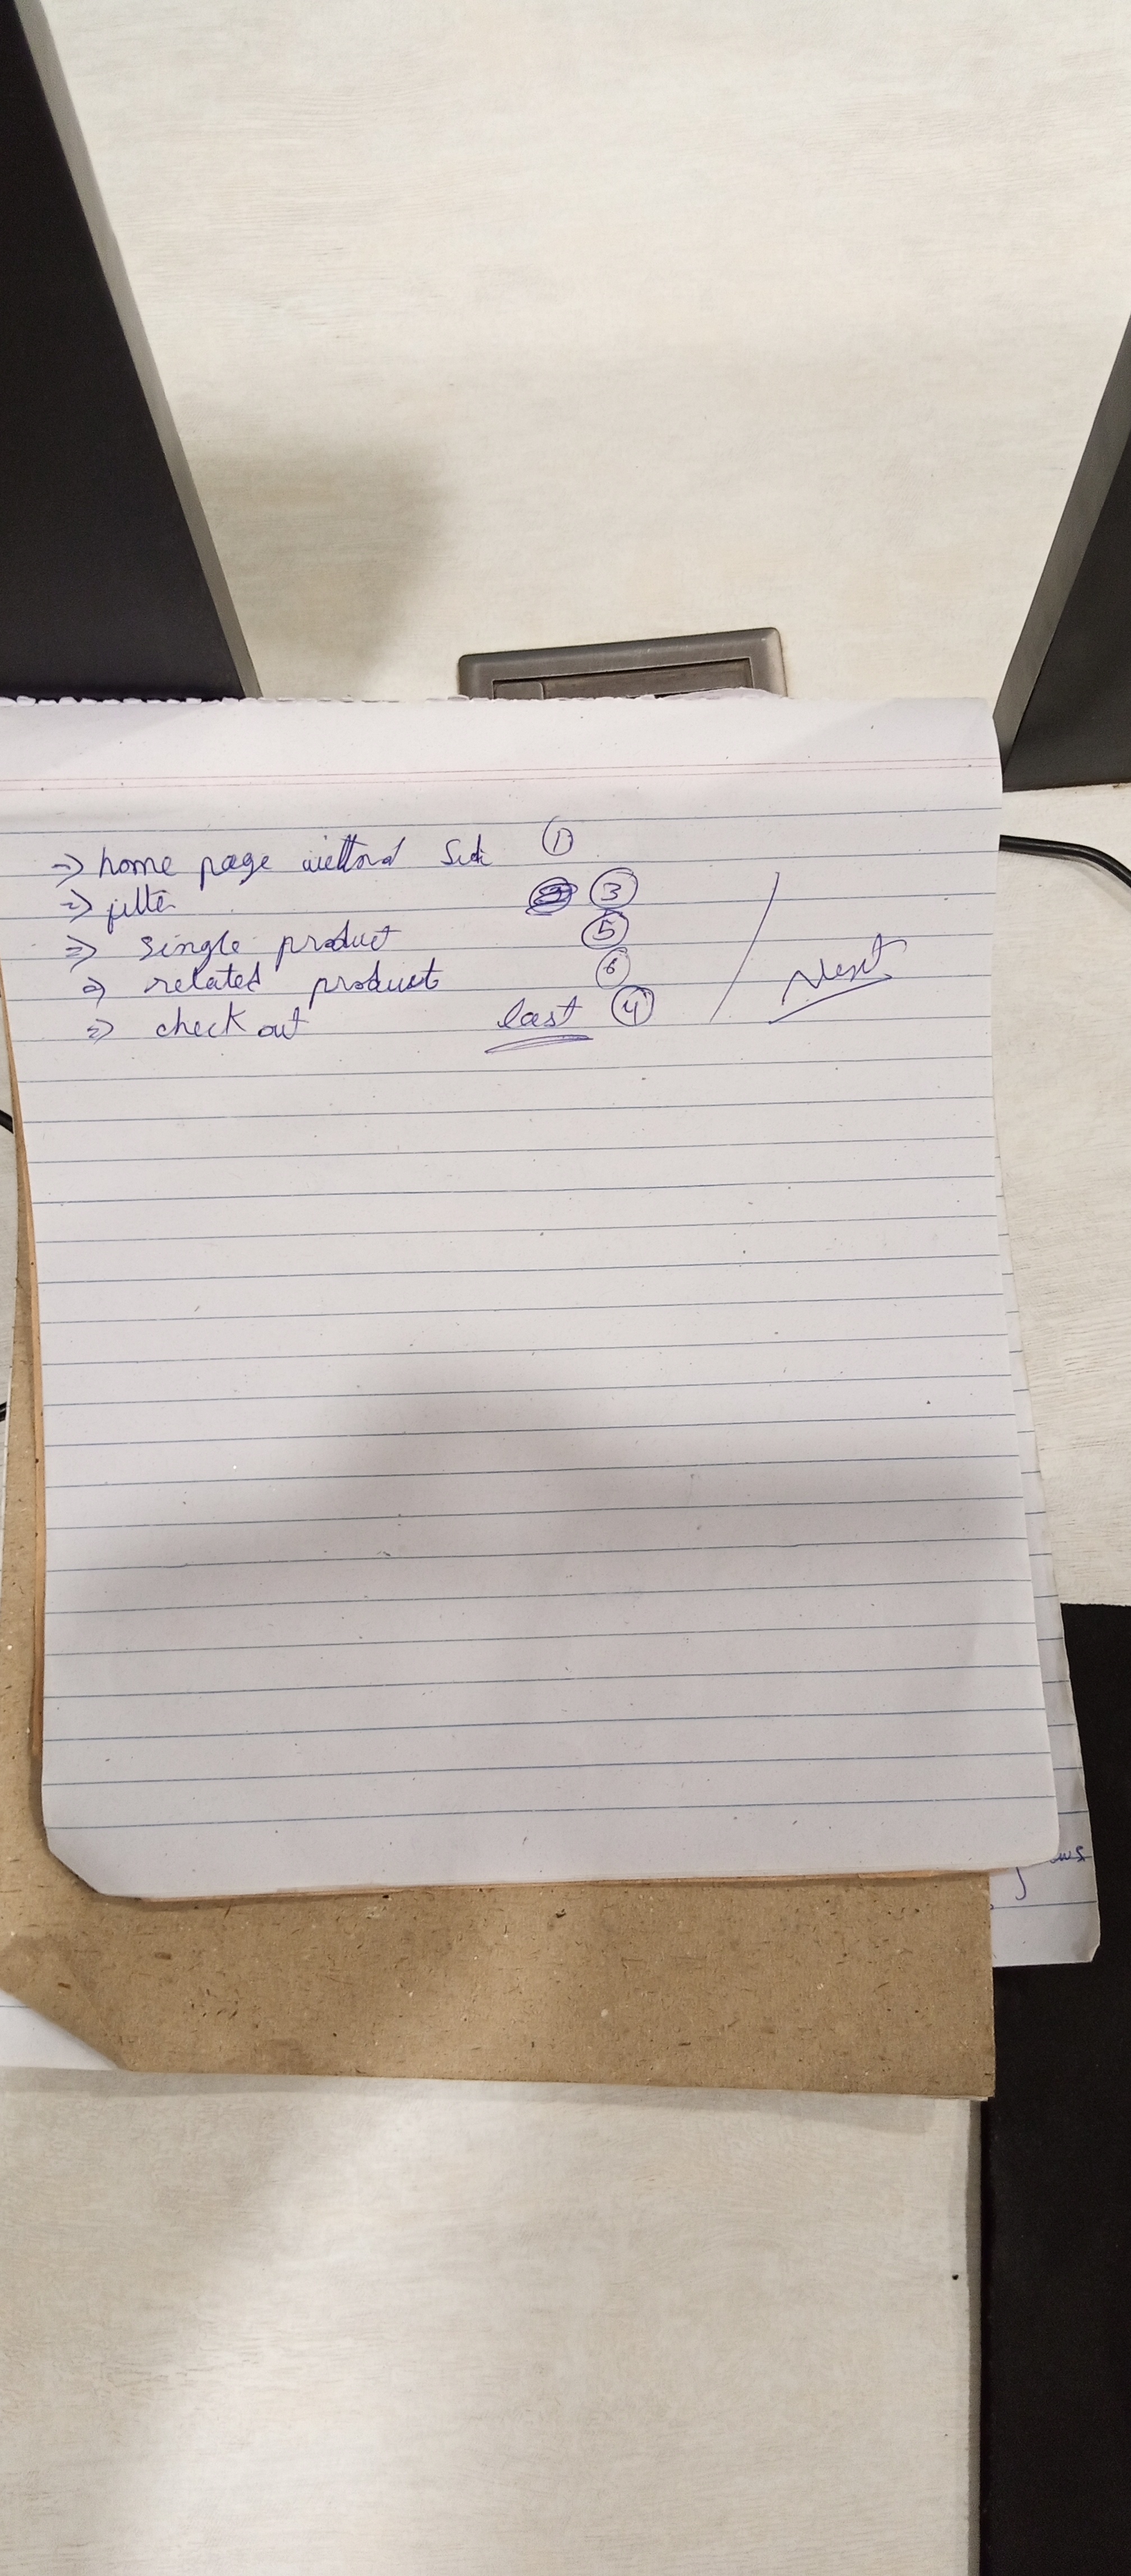 ⇒ home page without Side ①
⇒ filter ③
⇒ single product ⑤
⇒ related product ⑥
⇒ check out last ④ / Next